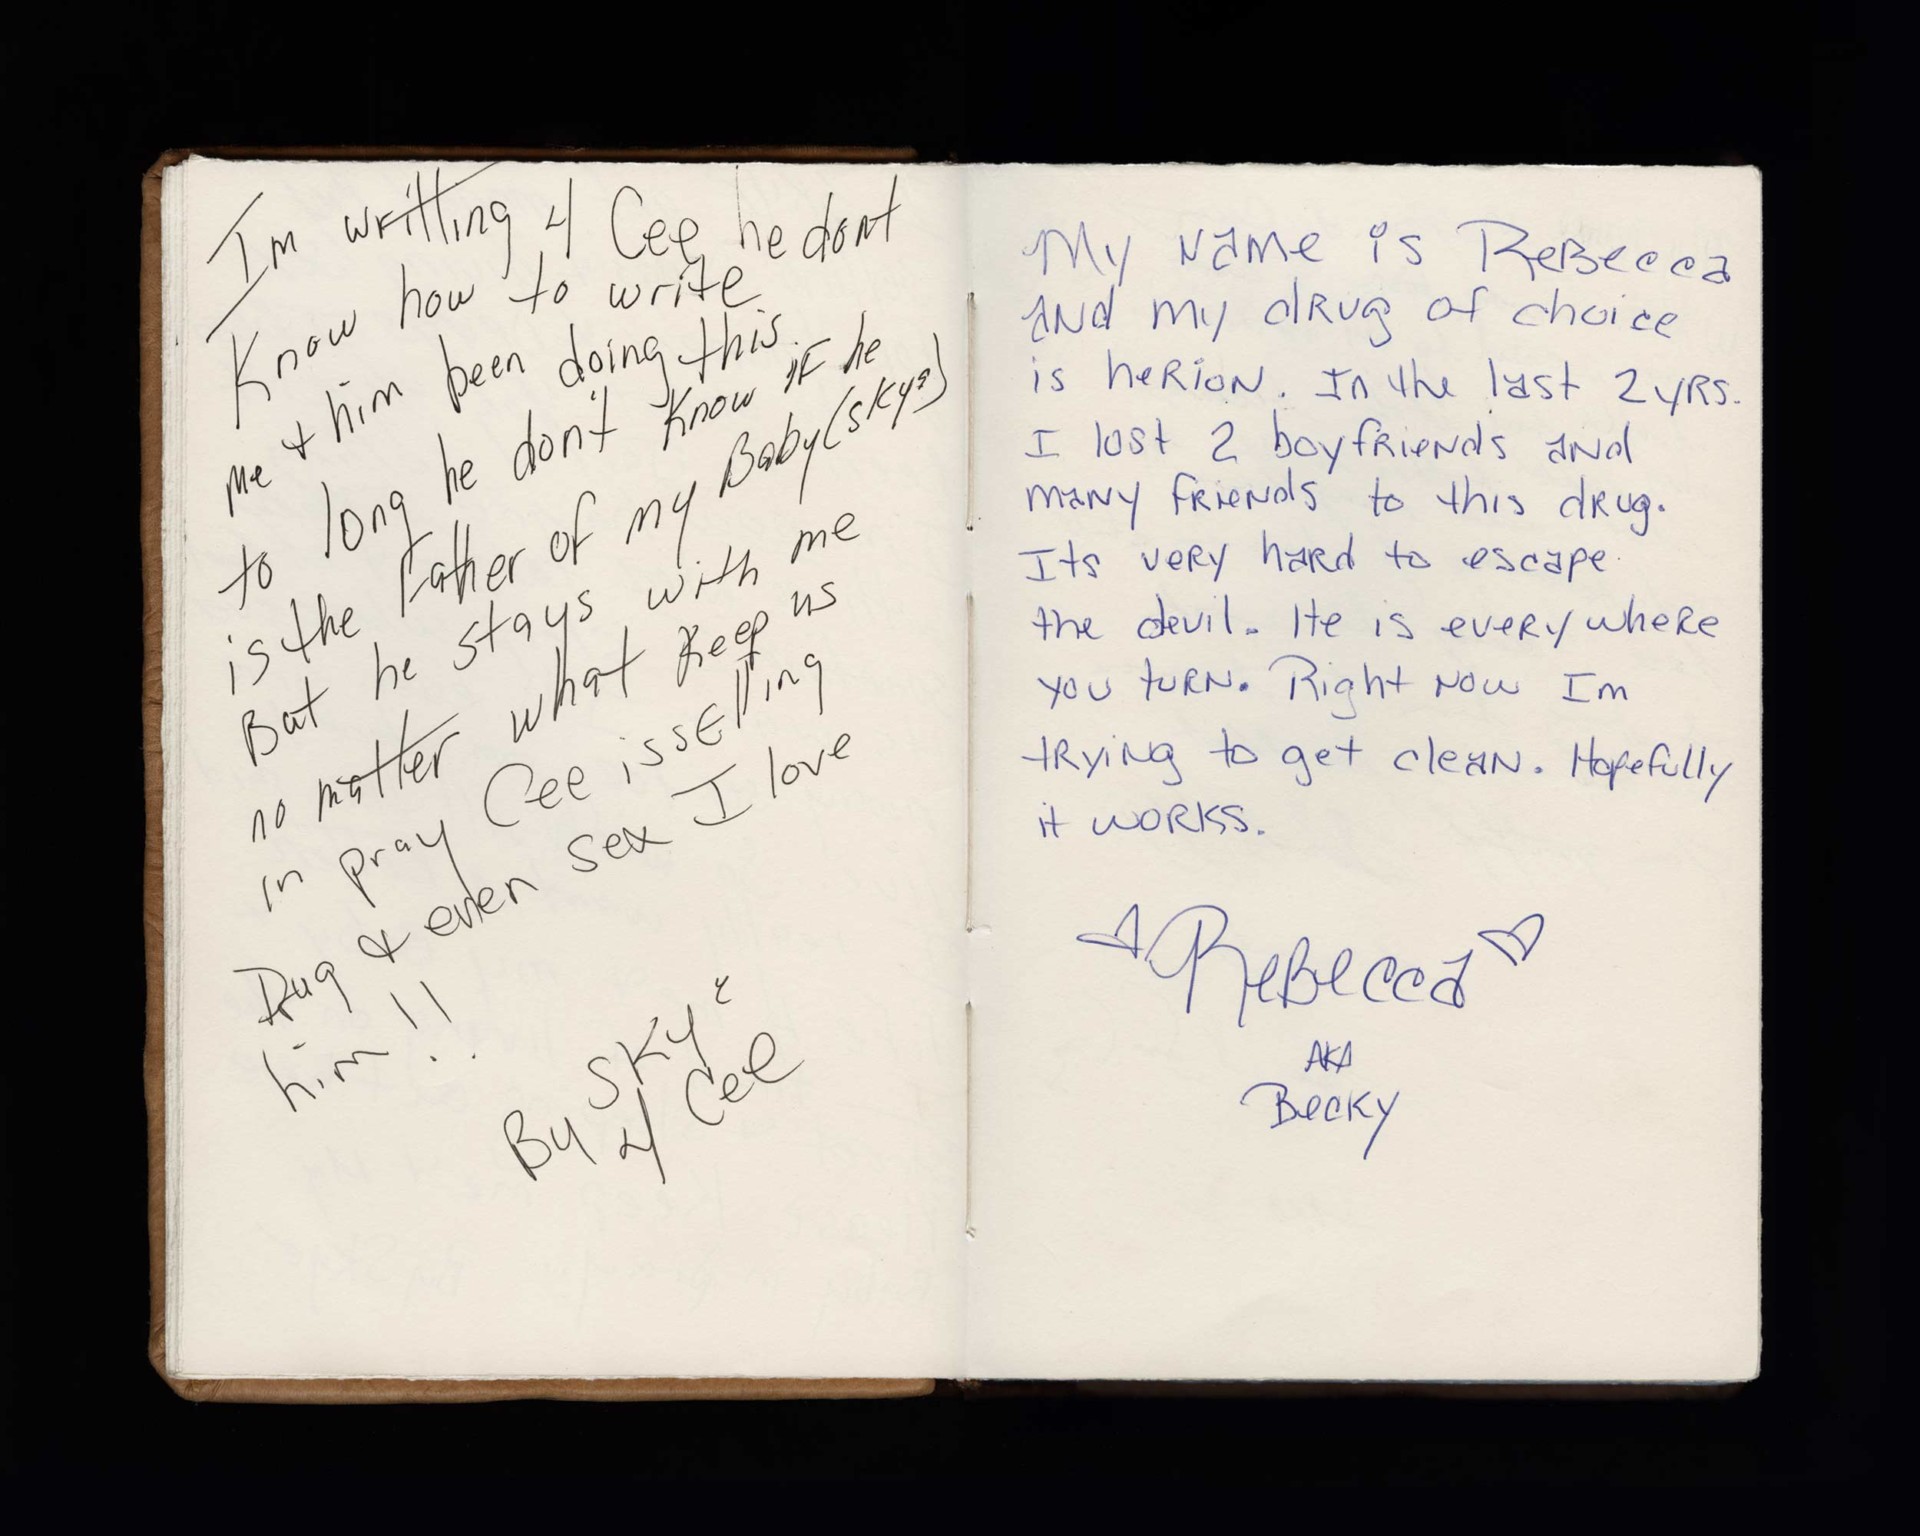 Im writting 4 Cee he dont
Know how to write
me & him been doing this
to long he don't know iF he
is the Father of my Baby (skys)
But he stays with me
no matter what Keep us
in pray Cee is sElling
Drug & even sex I love
him !!
By Sky
4 Cee
My name is ReBecca
and my drug of choice
is herion. In the last 2 yrs.
I lost 2 boyfriends and
many friends to this drug.
Its very hard to escape
the devil. He is everywhere
you turn. Right now Im
trying to get clean. Hopefully
it works.
ReBecca
AKA
Becky